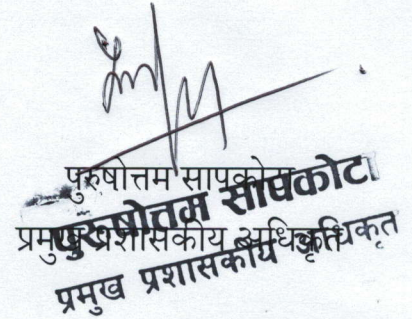 पुरुषोत्तम सापकोटा
प्रमुख प्रशासकीय अधिकृत
पुरुषोत्तम सापकोटा
प्रमुख प्रशासकीय अधिकृत